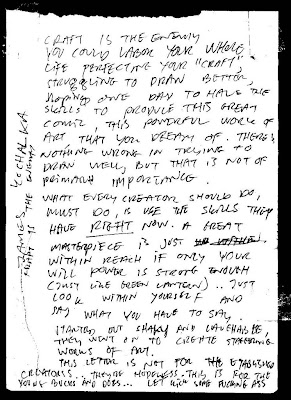 CRAFT IS THE ENEMY
YOU COULD LABOR YOUR WHOLE
LIFE PERFECTING YOUR "CRAFT",
STRUGGLING TO DRAW BETTER,
HOPING ONE DAY TO HAVE THE
SKILLS TO PRODUCE THIS GREAT
COMIC, THIS POWERFUL WORK OF
ART THAT YOU DREAM OF. THERE'S
NOTHING WRONG IN TRYING TO
DRAW WELL, BUT THAT IS NOT OF
PRIMARY IMPORTANCE.
WHAT EVERY CREATOR SHOULD DO,
MUST DO, IS USE THE SKILLS THEY
HAVE RIGHT NOW. A GREAT
MASTERPIECE IS JUST
WITHIN REACH IF ONLY YOUR
WILL POWER IS STRONG ENOUGH
(JUST LIKE GREEN LANTERN). JUST
LOOK WITHIN YOURSELF AND
SAY WHAT YOU HAVE TO SAY.
STARTED OUT SHAKY AND LAUGHABLE,
THEY WENT ON TO CREATE STAGGERING
WORKS OF ART.
THIS LETTER IS NOT FOR THE ESTABLISHED
CREATORS... THEY'RE HOPELESS. THIS IS FOR THE
YOUNG BUCKS AND DOES... LET KICK SOME FUCKING ASS
JAMES KOCHALKA
CRAFT IS THE ENEMY